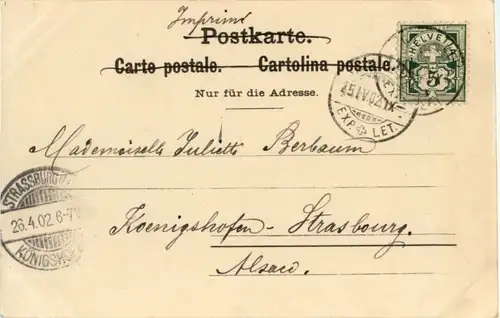 Imprimé
Postkarte.
Carte postale. Cartolina postale.
Nur für die Adresse.
HELVETIA
5
25.IV.02.IX
EXP. LET.
Mademoiselle Juliette Berbaum
STRASSBURG
26.4.02.6-7
KÖNIGSH
Koenigshofen-Strasbourg.
Alsace.